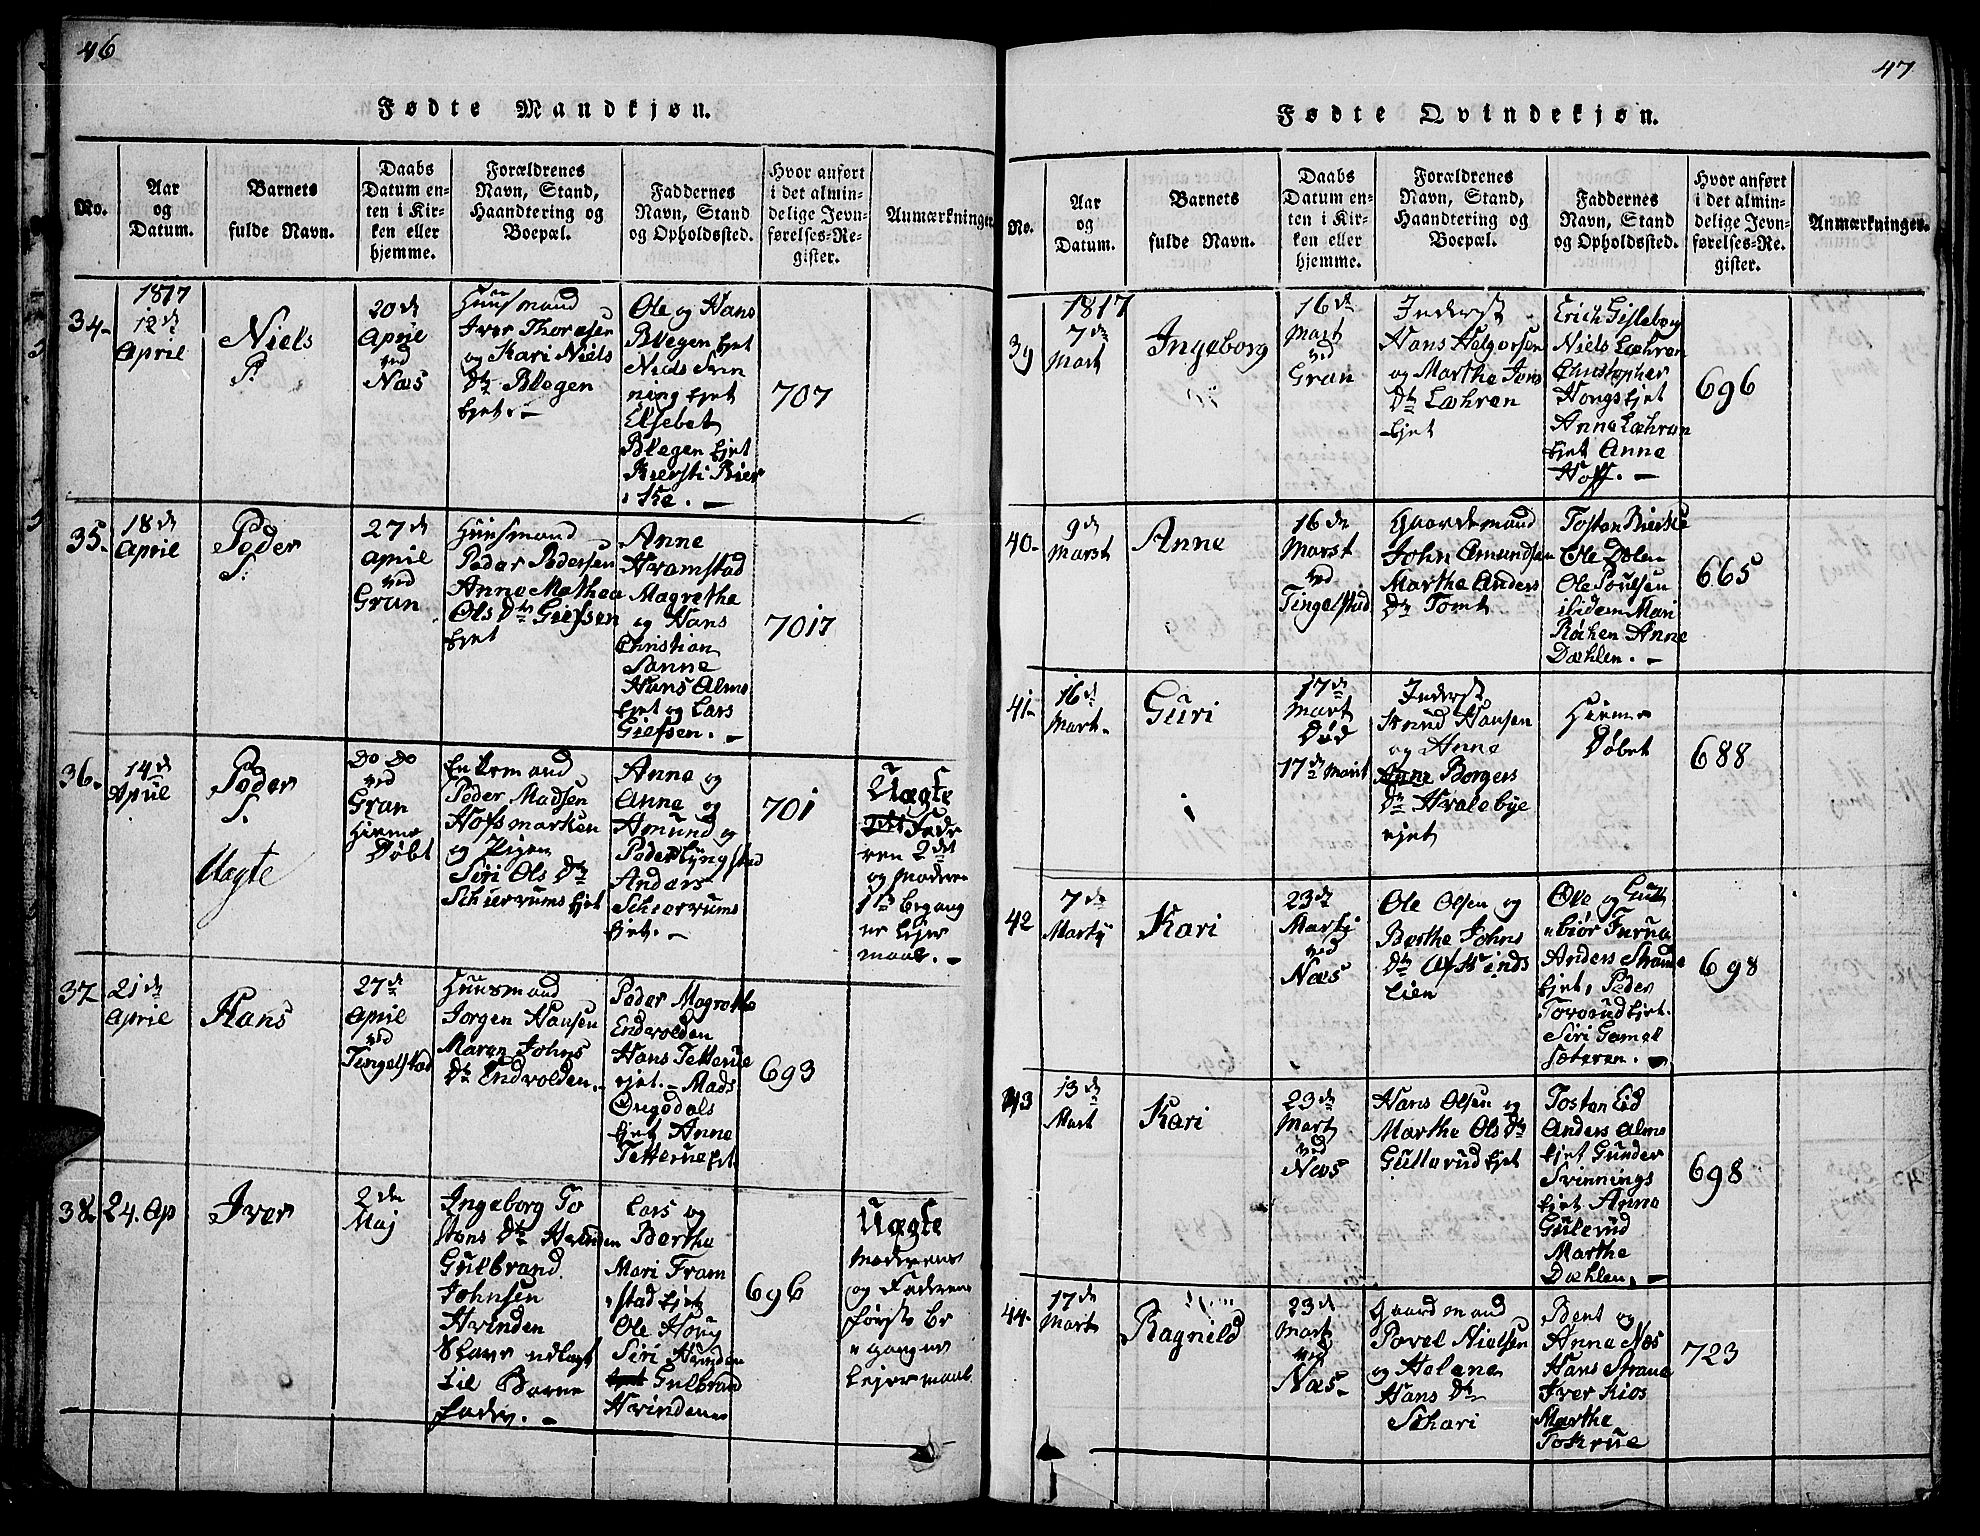 46
Fødte Mandkjøn.
No.
Aar
og
Datum.
Barnets
fulde Navn.
Daabs
Datum en-
ten i Kir-
ken eller
hjemme.
Forældrenes
Navn, Stand,
Haandtering og
Boepæl.
Faddernes
Navn, Stand
og Opholdssted.
Hvor anført
i det almin-
delige Jevn-
førelses-Re-
gister.
Anmærkninger.
34-
1817
12de
April
Niels
P.
20de
April
ved
Næs
Huusmand
Iver Thoresen
og Kari Niels
Dtr Blegen
Ejet. -
Ole og Hans
Blegen Ejet
Niels Svin
ning Ejet
Elsebet
Blegen Ejet
Kiersti Bier
ke. -
707
35.
18de
April
Peder
S.
27de
April
ved
Gran
Huusmand
Peder Pedersen
Anne Mathea
Ols Dtr Giefsen
Ejet
Anne
Framstad
Magrethe
og Hans
Christian
Sanne
Hans Alms
Ejet og Lars
Giefsen. -
7017
36.
14de
April
Peder
S.
Uægte
Do Do
ved
Gran
Hieme
Døbt
Enkemand
Peder Madsen
Hofsmarken
og Pigen
Siri Ols Dtr
Schierrums Ejet
Anne og
Anne og
Amund og
Peder Lyngstad
Anders
Schierrums
Ejet. -
701
Uægte
Fade
ren 2det
og Moderen
1ste begang
ne Lejer
maal. -
37
21de
April
Hans
27de
April
ved
Tingelstad
Huusmand
Jorgen Hansen
Maren Johns
Dtr Endvolden.
Peder Magrethe
Endvolden
Hans Tetterue
Ejet. - Mads
Øregdals
Ejet Anne
Tetterue Ejet
693
38.
24. Ap
Iver
2den
Maj
Ingeborg To
stens Dtr Hvinden
Gulbrand
Johnsen
Hvinden
udlagt
til Barne
fader. -
Lars og
Berthe
Mari Fram
stad Ejet
Ole Hovy
Siri Hvinden
Gulbrand
Hvindenes
696
Uægte
Moderens
og Faderens
første be
gangne
Lejermaal
47
Fødte Qvindekjøn.
No.
Aar
og
Datum.
Barnets
fulde Navn.
Daabs
Datum en-
ten i Kir-
ken eller
hjemme.
Forældrenes
Navn, Stand,
Haandtering og
Boepæl.
Faddernes
Navn, Stand
og Opholdssted.
Hvor anført
i det almin-
delige Jevn-
førelses-Re-
gister.
Anmærkninger.
39
1817
7de
Mart
Ingeborg
16de
Mart
ved
Gran
Inderst
Hans Helgersen
og Marthe Jens
Dtr Læhren
Ejet
Erich Gisleborg
Niels Læhren
Christopher
Hongs Ejet
Anne Læhren
Ejet Anne
Hoff. -
696
40.
9de
Marst
Anne
16de
Marst
ved
Tingelstad
Gaardemand
John Amundsen
Marthe Anders
Dtr Tomt
Tosten Bierke
Ole Dolen
Ole Poulsen
ibidem Mari
Røken Anne
Dæhlen. -
665
41-
16de
Mart.
Guri
17de
Mart
Død
17de Mart
Inderst
Knud Hansen
og Anne
Borgers
Dtr Hvalebye
Ejet
Hieme
Døbet
688
42
7de
Martij
Kari
23de
Martij
ved
Næs
Ole Olsen og
Berthe Johns
Dtr
Lien
Ole og Gutt
biør Furua
Anders Strande
Ejet, Peder
Torørud Ejet.
Siri Gamel
sæteren. -
698
43
13de
Mart
Kari
23de
Mart
ved
Næs
Hans Olsen og
Marthe Ols Dtr
Gullerud Ejet
Tosten Eid
Anders Alms
Ejet Gunder
Svinnings
Ejet Anne
Gulerud
Marthe
Dæhlen, -
698
44-
17de
Mart
Ragnild
23de
Mart
ved
Næs.
Gaardmand
Povel Nielsen
og Helene
Hans Dtr
Schari
Bent og
Anne Næs
Hans Strand
Iver Kios
Marthe
Tokerue
723